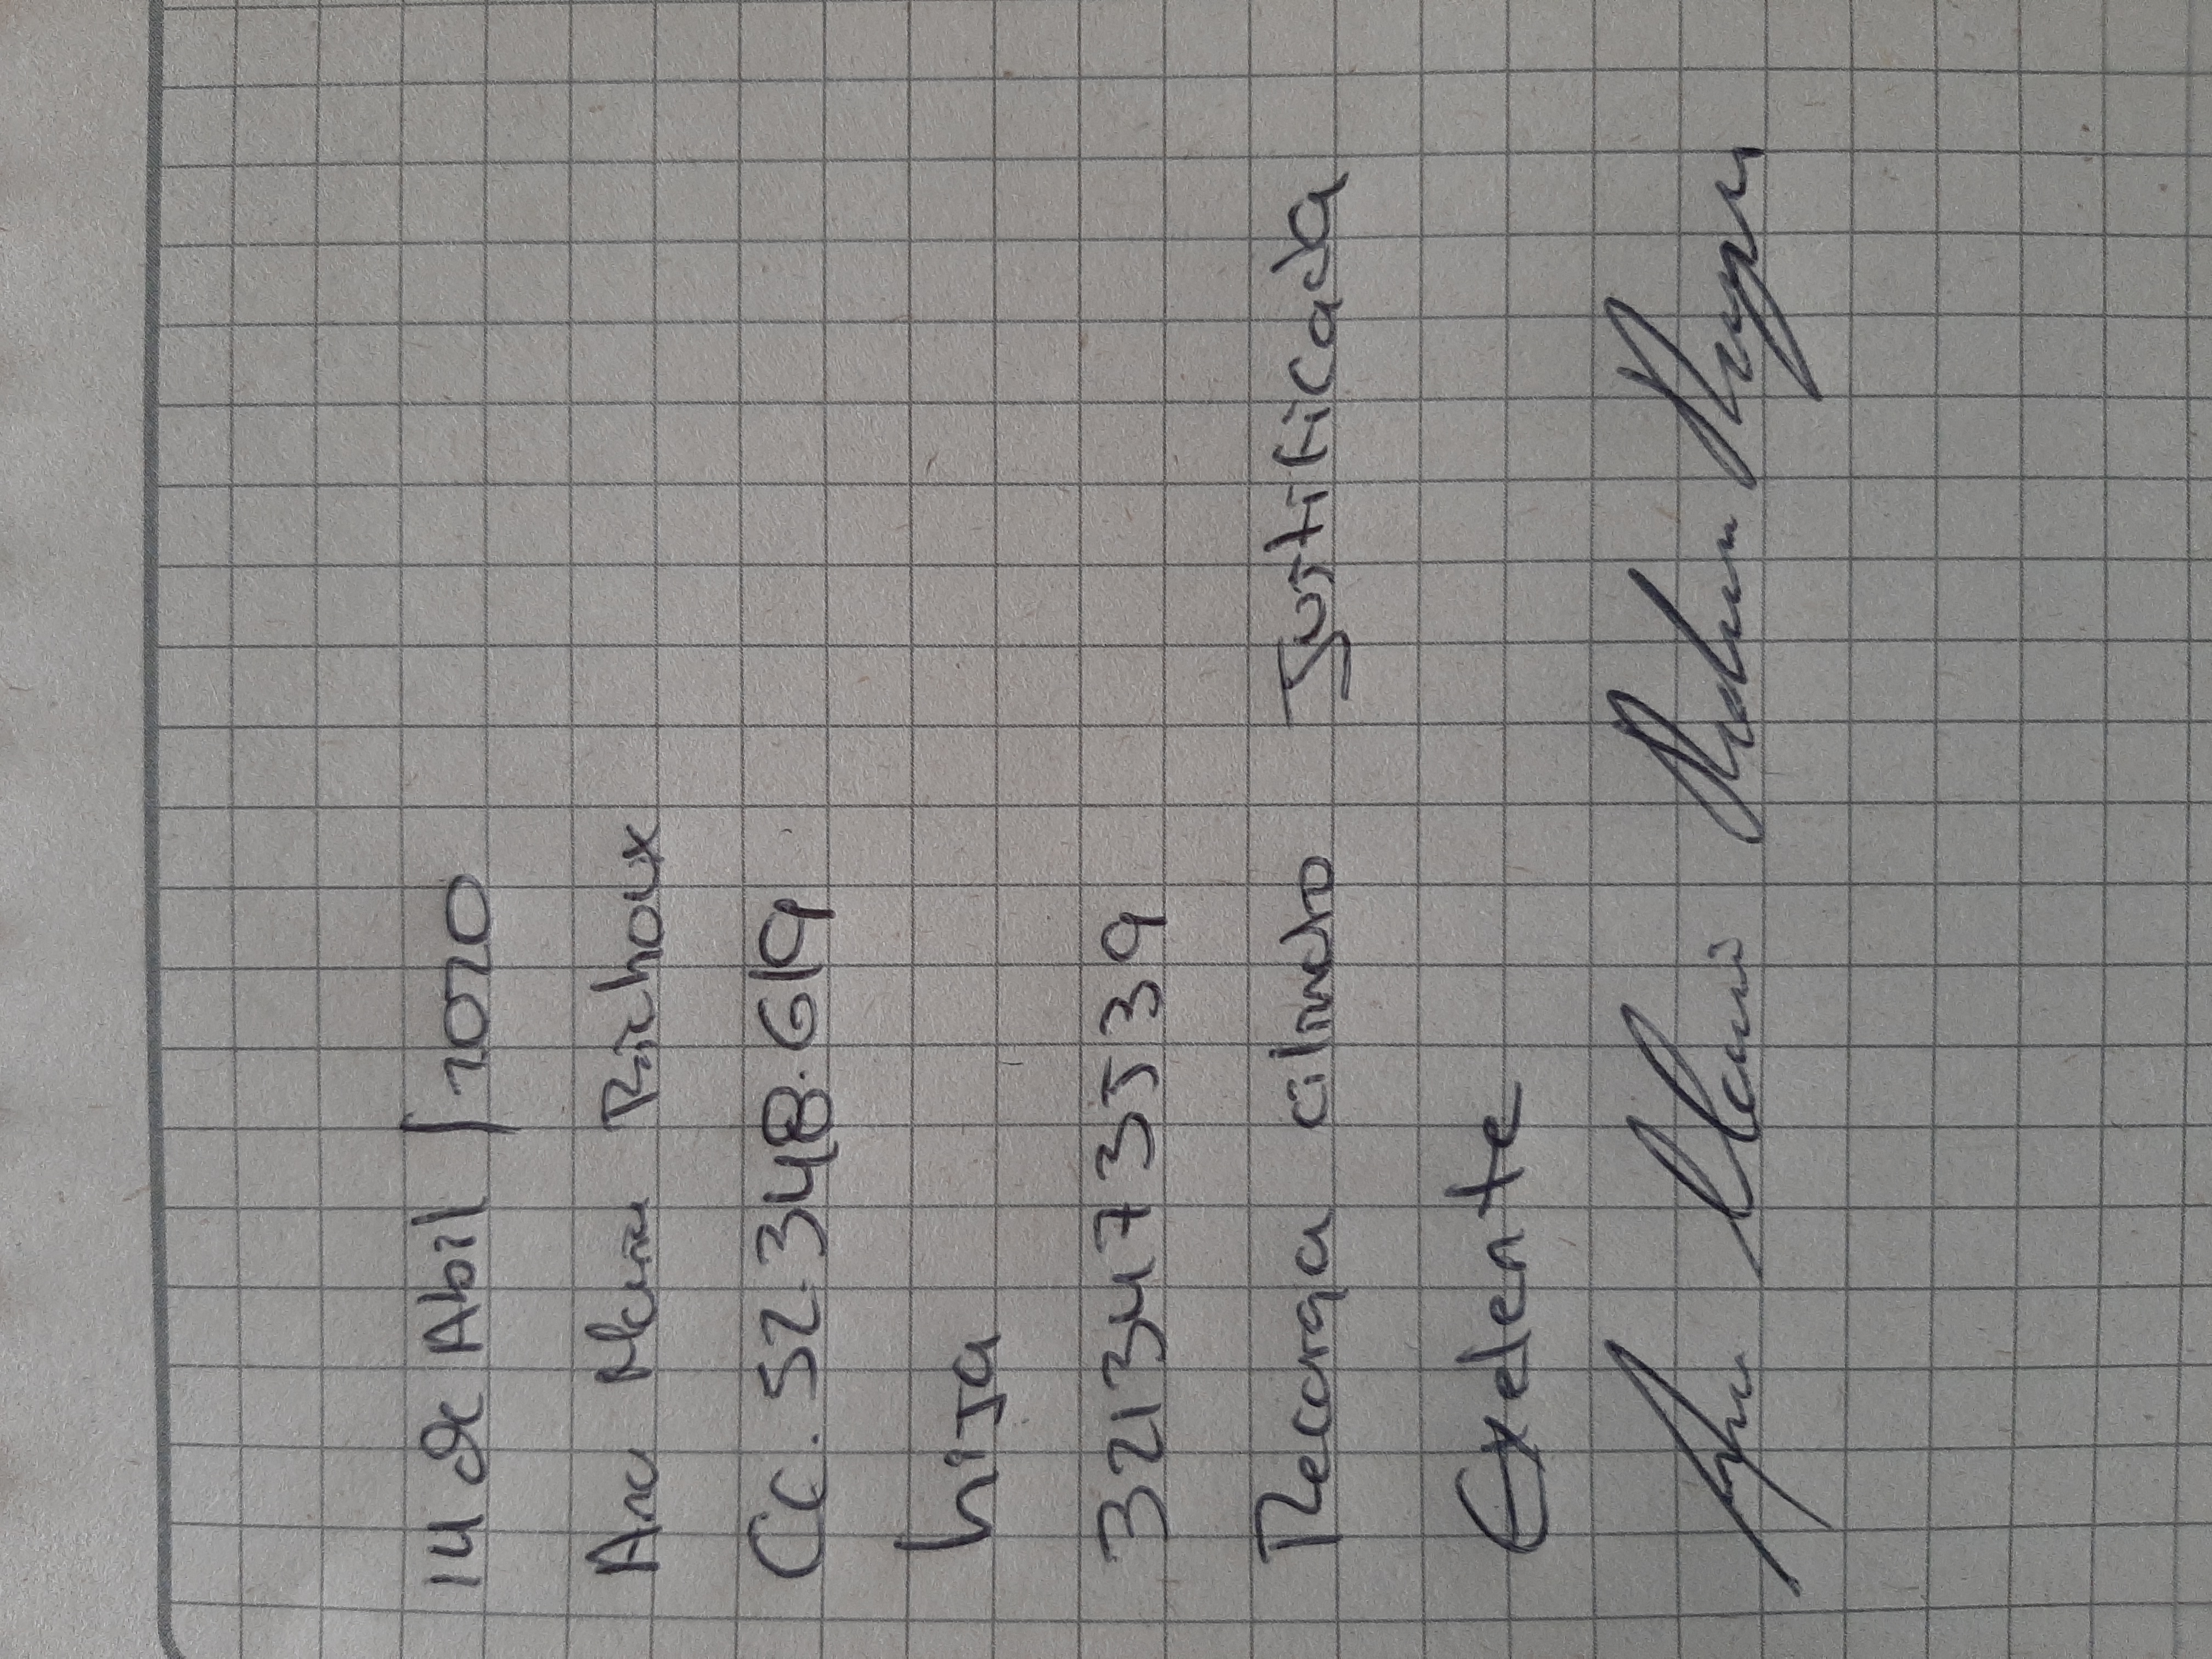 14 de Abil / 2020
Ana Maria Richoux
CC. 52.348.619
hija
3213473539
Recarga cilindro Justificada
Exelente
Ana Maria